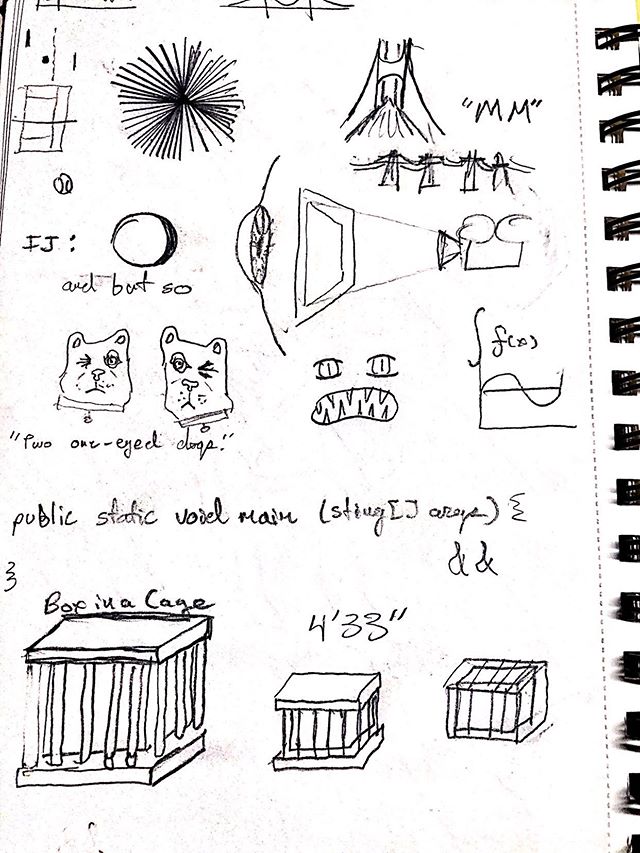 "MM"
IJ:
and but so
∫ f(x)
"Two one-eyed dogs."
public static void main (sting[] args) {
&&
}
Box in a Cage
4'33"